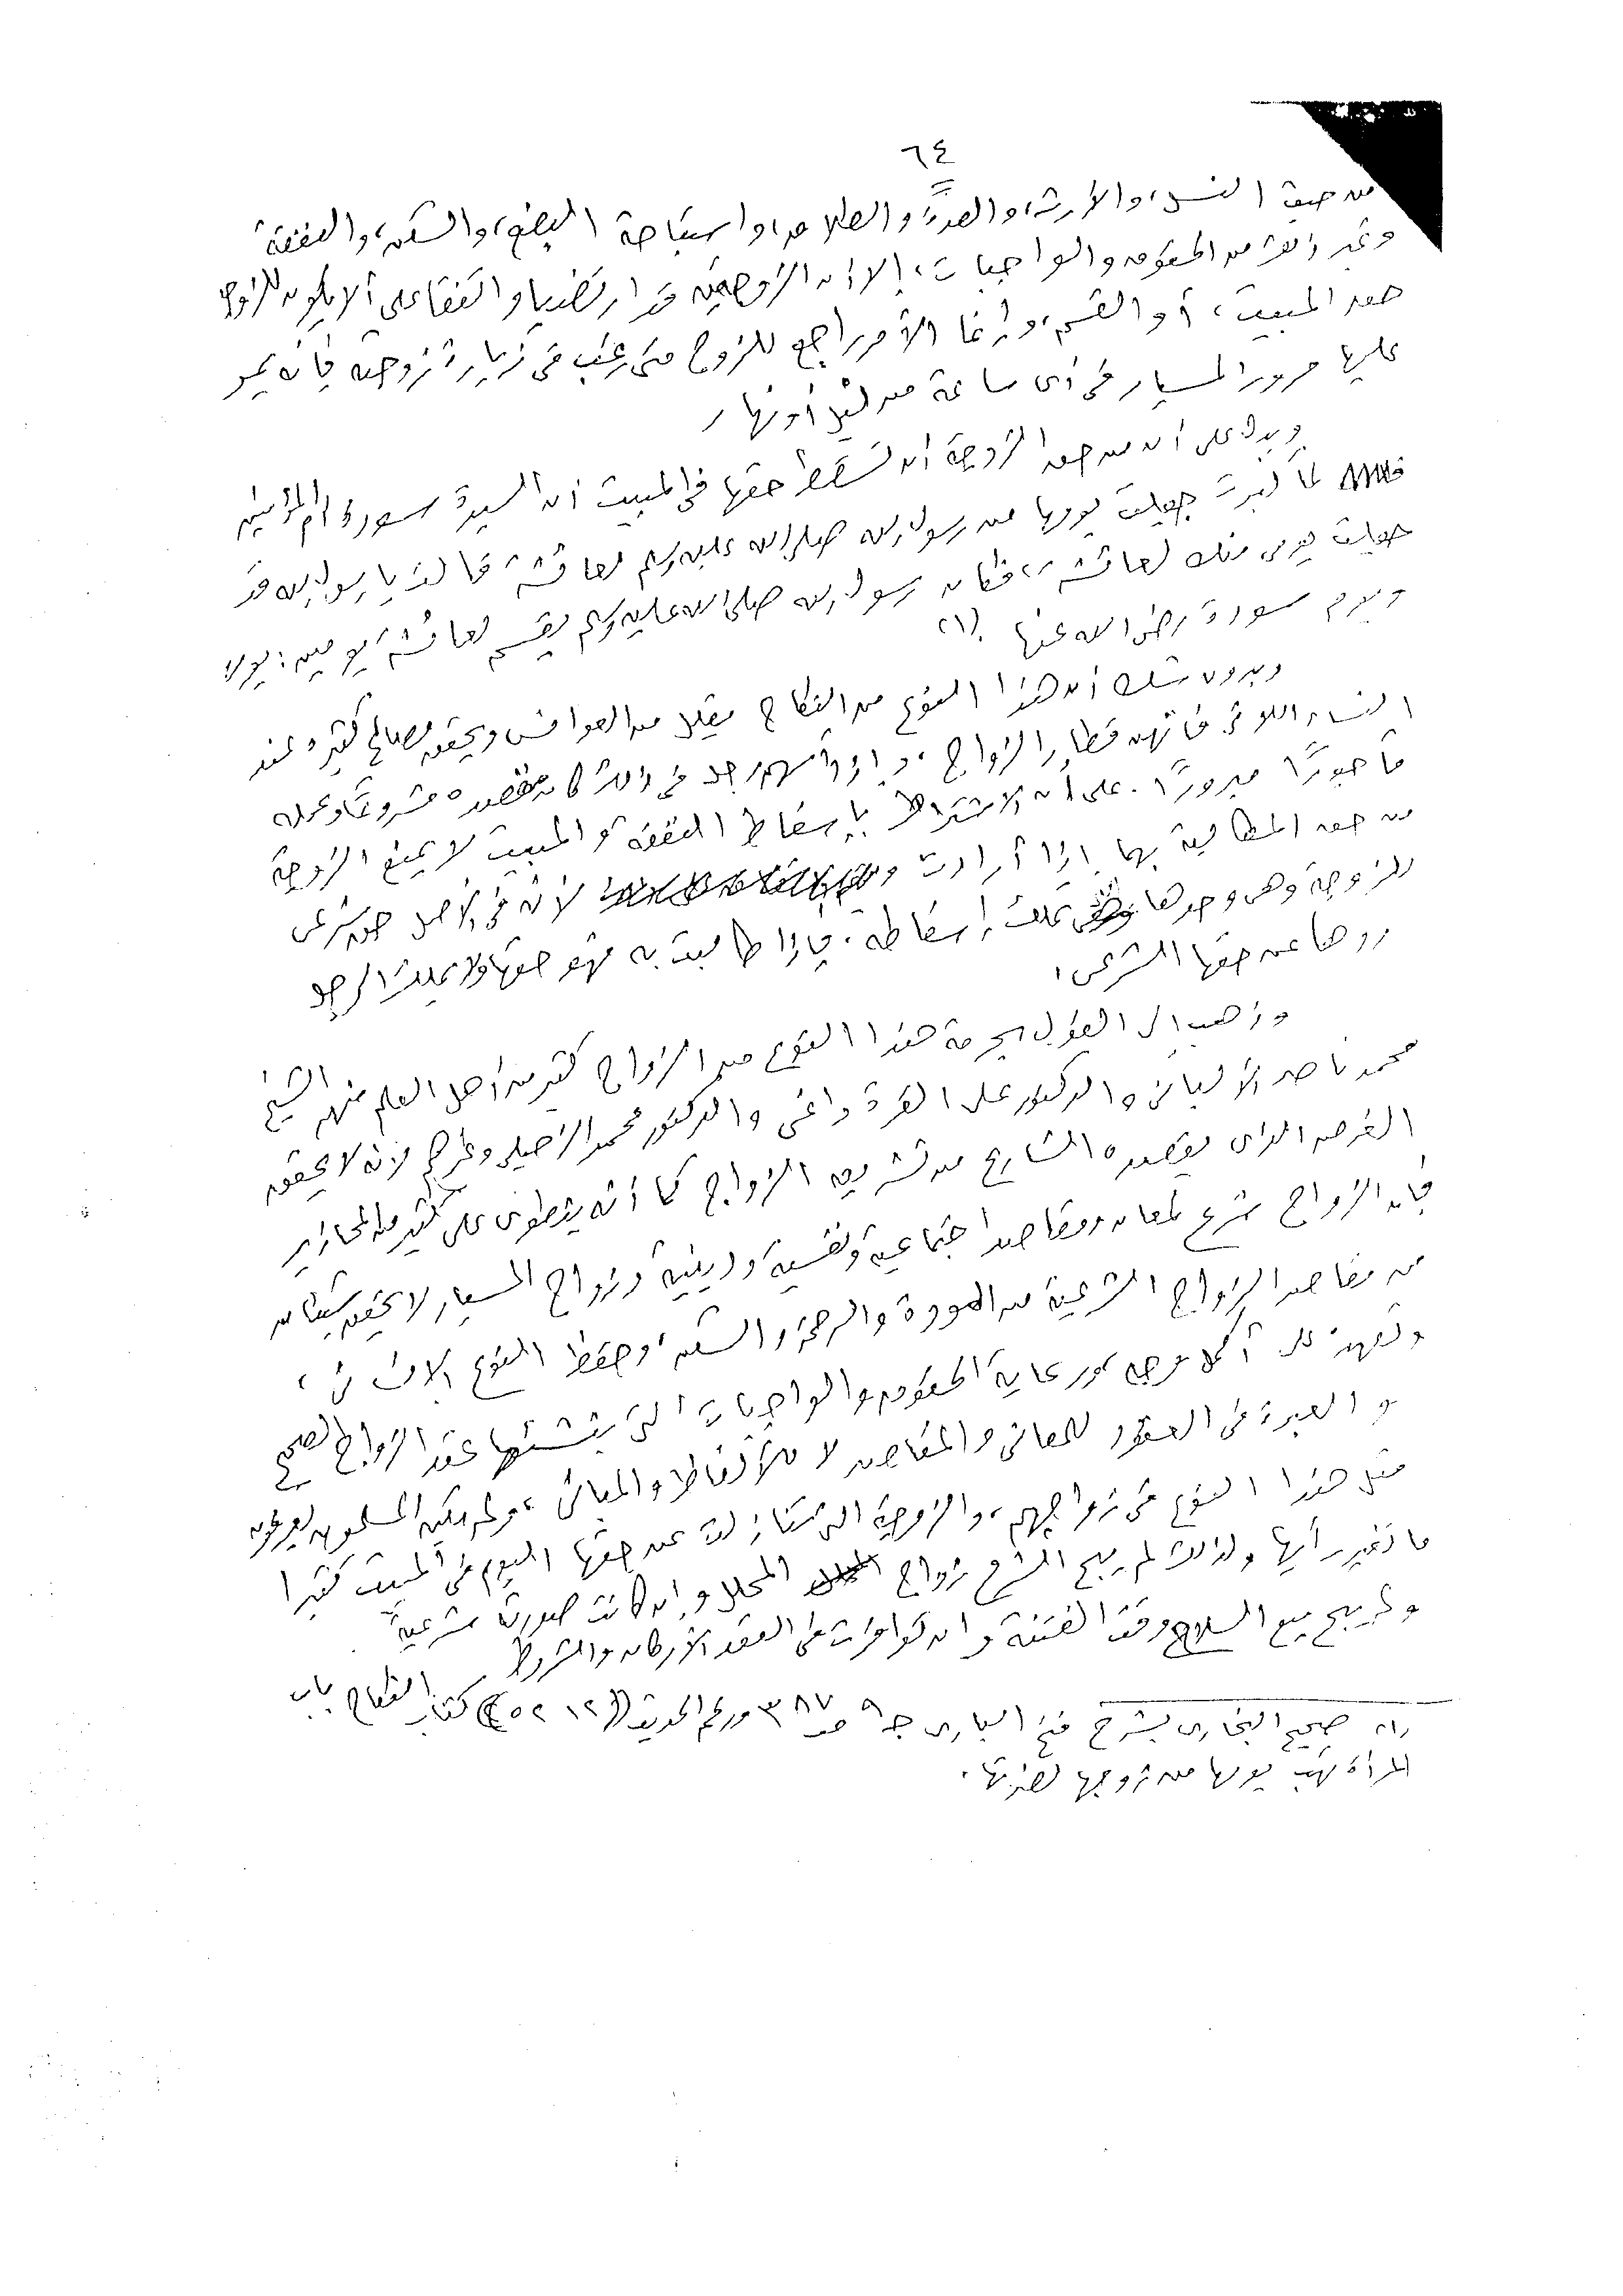 ٦٤
من حيث النسب، والإرث، والعدة، والطلاق، واستباحة البضع، والسكن، والنفقة
وغير ذلك من الحقوق والواجبات، إلا أن الزوجين قد ارتضيا واتفقا على ألا يكون للزوجة
حق المبيت، أو القسم، وإنما الأمر راجع للزوج متى رغب في زيارة زوجته فإنه يمر
عليها مرور المسيار في أي ساعة من ليل أو نهار
ويدل على أن من حق الزوجة أن تسقط حقها في المبيت أن السيدة سودة أم المؤمنين
لما كبرت جعلت يومها من رسول الله صلى الله عليه وسلم لعائشة قالت يا رسول الله قد
جعلت يومى منك لعائشة، فكان رسول الله صلى الله عليه وسلم يقسم لعائشة يومين: يومها
ويوم سودة رضى الله عنها. (١)
وبدون شك أن هذا النوع من النكاح يقلل من العوانس ويحقق مصالح كثيرة عند
النساء اللاتى فاتهن قطار الزواج، وإذا أسهم رجل في ذلك كان قصده مشروعا وعمله
مأجورًا مبرورًا. على أن الاشتراط بإسقاط النفقة والمبيت لا يمنع الزوجة
من حق المطالبة بها إذا أرادت لأنه في الأصل حق شرعى
للزوجة وهى وحدها تملك إسقاطه. فإذا طالبت به فهو حقها ولا يملك الرجل
ردها عن حقها الشرعى.
وذهب الى القول بحرمة هذا النوع من الزواج كثير من أهل العلم منهم الشيخ
محمد ناصر الألبانى والدكتور على القرة داغى والدكتور محمد الزحيلى وغيرهم لأنه لا يحقق
الغرض الذى يقصده الشارع من تشريع الزواج كما أنه ينطوى على كثير من المحاذير
فإن الزواج شرع لمعان ومقاصد اجتماعية ونفسية ودينية وزواج المسيار لا يحقق شيئا
من مقاصد الزواج الشرعية من المودة والرحمة والسكن، وحفظ النوع الانسانى،
على أكمل وجه ورعاية الحقوق والواجبات التى ينشئها عقد الزواج الصحيح
والعبرة في العقود للمعانى والمقاصد لا للألفاظ والمبانى، ولم يكن المسلمون يعرفون
مثل هذا النوع في زواجهم، والزوجة التى تتنازلت عن حقها اليوم في المبيت كثيرا
ما تغير رأيها ولذلك لم يبح الشرع زواج المحلل وإن كانت صورته شرعية
ولم يبح بيع السلاح وقت الفتنة وان توافرت في العقد الأركان والشروط
(١) صحيح البخارى بشرح فتح البارى جـ ٩ صـ ٣٨٧ ورقم الحديث (٥٢١٢) كتاب النكاح باب
المرأة تهب يومها من زوجها لضرتها.